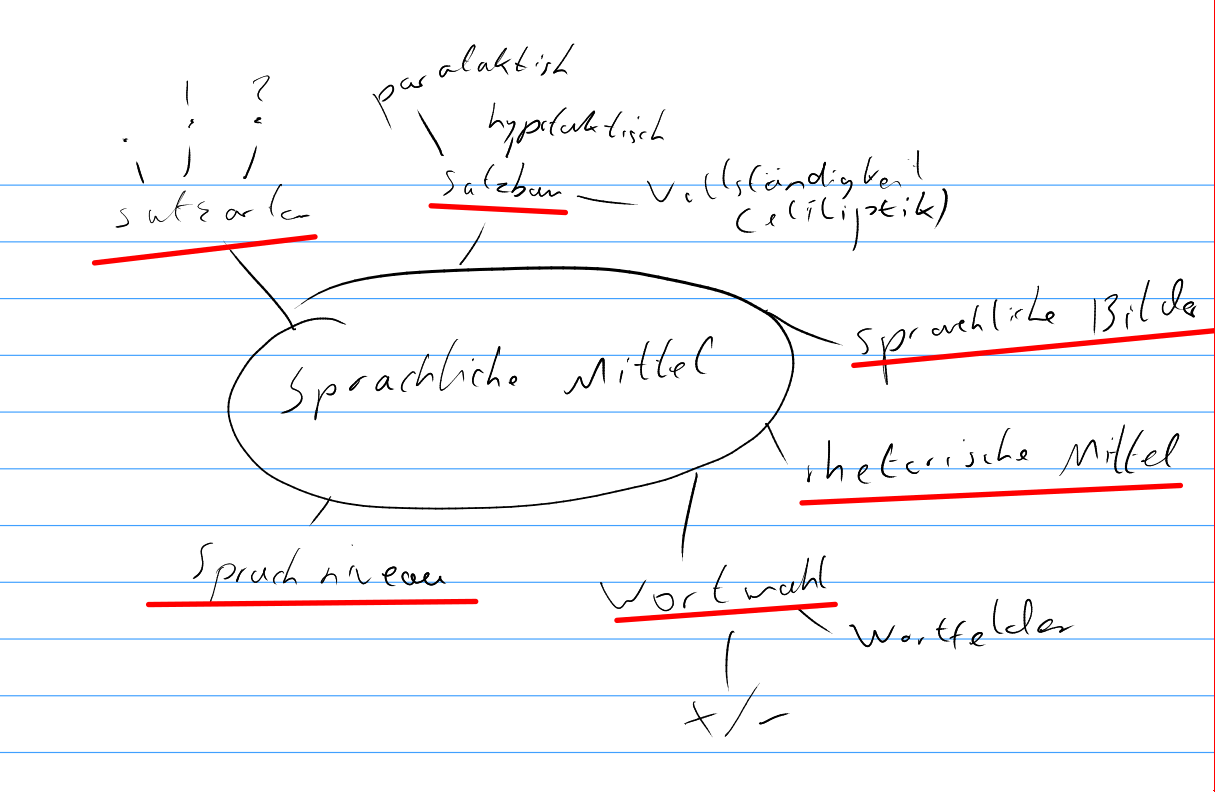 paralaktisch
. ! ?
hypotaktisch
Satzbau
Vollständigkeit
(elliptik)
Satzarten
sprachliche Bilder
Sprachliche Mittel
rhetorische Mittel
Sprachniveau
Wortwahl
Wortfelder
+/-